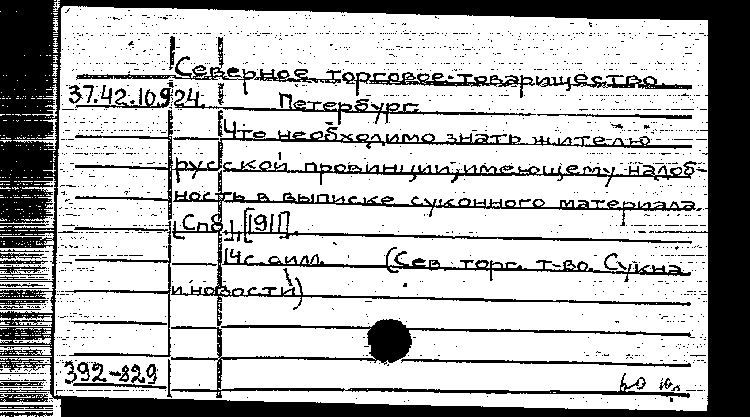 Северное торговое товарищество.
37.42.10.924. Петербург.
Что необходимо знать жителю
русской провинции, имеющему надоб-
ность в выписке суконного материала.
[Спб.], [1911].
14 с. с илл. (Сев. торг. т-во. Сукна
и новости)
392-829